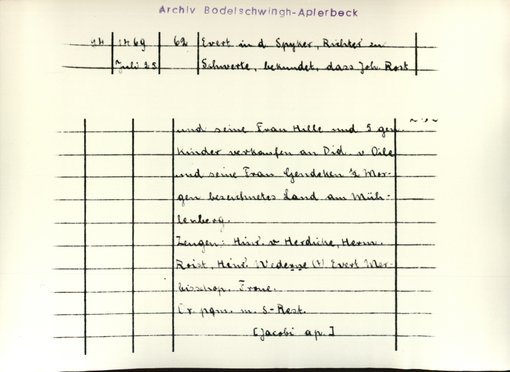 Archiv Bodelschwingh-Aplerbeck
44 1469 62 Evert in d Spyker, Richter en
Juli 25 Schwerte, bekundet, dass Joh Rost
und seine Frau Hille und 5 gen
Kinder verkaufen an Did. v Oile
und seine Frau Gendeken ½ Mor-
gen bezeichnetes Land am Müh-
lenberg.
Zeugen: Hinr. v Herdicke, Herm.
Roist, Heinr. (!) Evert Mor-
Frone.
Or. pgm. m. S-Rest.
[Jacobi ap.]